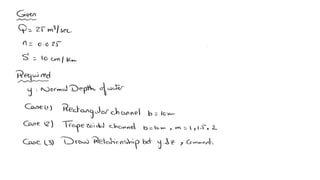 Given
Q = 25 m³/sec
n = 0.025
S = 10 cm/km
Required
y : Normal Depth of water
Case(1) Rectangular channel b=10m
Case (2) Trapezoidal channel b=10m, m=1,1.5,2
Case (3) Draw Relationship bet y &, Comment.